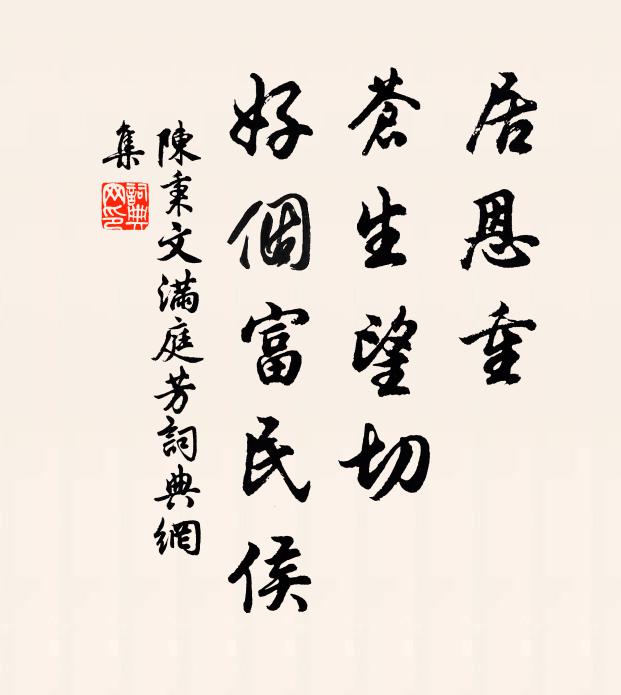 居恩重
蒼生望切
好個富民侯
陳秉文滿庭芳詞典網
集
詞典網印